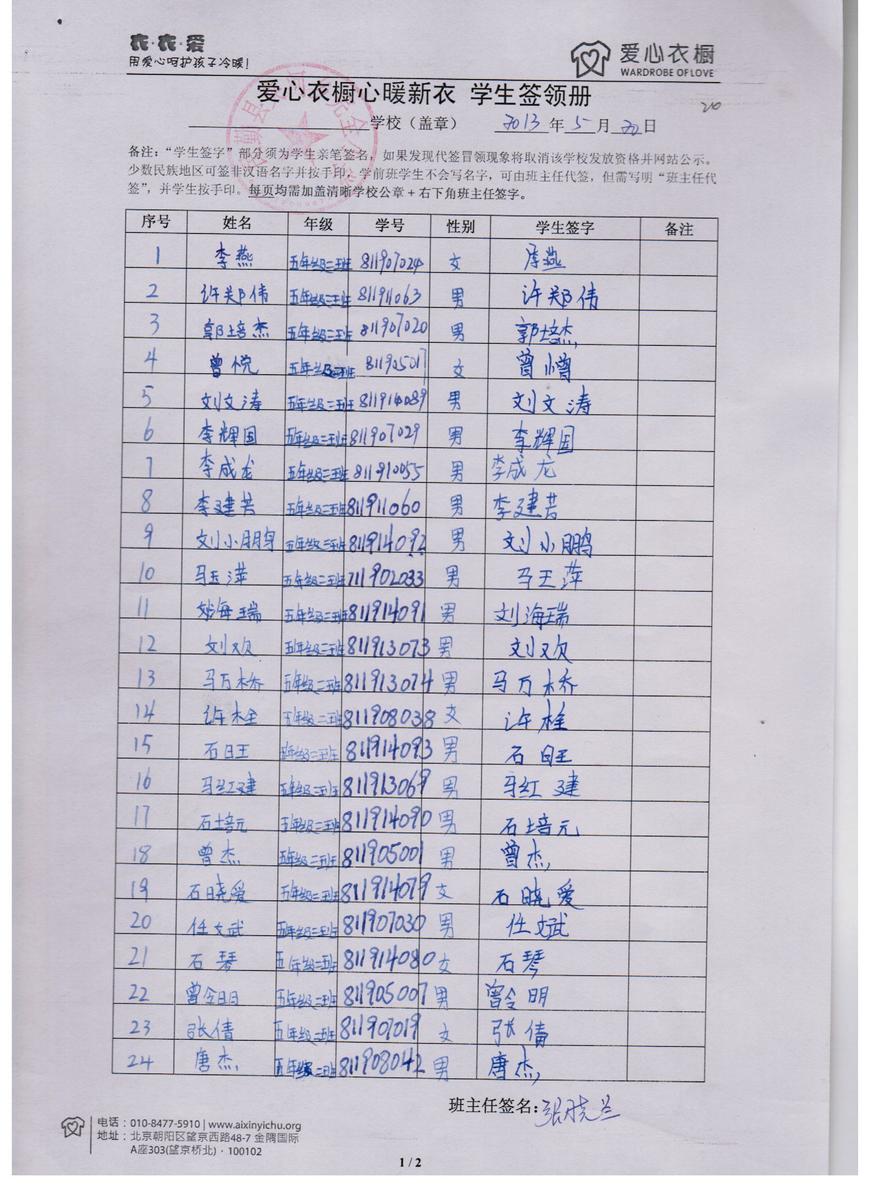 衣·衣·爱
用爱心呵护孩子冷暖!
爱心衣橱
WARDROBE OF LOVE
爱心衣橱心暖新衣 学生签领册
20
学校（盖章） 2013 年 5 月 20 日
备注：“学生签字”部分须为学生亲笔签名，如果发现代签冒领现象将取消该学校发放资格并网站公示。
少数民族地区可签非汉语名字并按手印，学前班学生不会写名字，可由班主任代签，但需写明“班主任代
签”，并学生按手印。每页均需加盖清晰学校公章＋右下角班主任签字。
序号 姓名 年级 学号 性别 学生签字 备注
1 李燕 五年级二班 811907024 女 李燕
2 许郑伟 五年级二班 811911063 男 许郑伟
3 郭培杰 五年级二班 811907020 男 郭培杰
4 曾悦 五年级二班 811905017 女 曾
5 刘文涛 五年级二班 811914089 男 刘文涛
6 李辉国 五年级二班 811907029 男 李辉国
7 李成龙 五年级二班 811910055 男 李成龙
8 李建芳 五年级二班 811911060 男 李建芳
9 刘小鹏 五年级二班 811914092 男 刘小鹏
10 马玉萍 五年级二班 711902033 男 马玉萍
11 海瑞 五年级二班 811914091 男 刘海瑞
12 刘欢 五年级二班 811913073 男 刘欢
13 马万桥 五年级二班 811913074 男 马万桥
14 许桂 五年级二班 811908038 女 许桂
15 石旺 五年级二班 811914093 男 石旺
16 马红建 五年级二班 811913069 男 马红建
17 石培元 五年级二班 811914090 男 石培元
18 曾杰 五年级二班 811905001 男 曾杰
19 石晓爱 五年级二班 811914079 女 石晓爱
20 任文斌 五年级二班 811907030 男 任文斌
21 石琴 五年级二班 811914080 女 石琴
22 曾令明 五年级二班 811905007 男 曾令明
23 张倩 五年级二班 811907019 女 张倩
24 唐杰 五年级二班 811908042 男 唐杰
班主任签名：张晓兰
电话：010-8477-5910 | www.aixinyichu.org
地址：北京朝阳区望京西路48-7 金隅国际
A座303(望京桥北)·100102
1 / 2